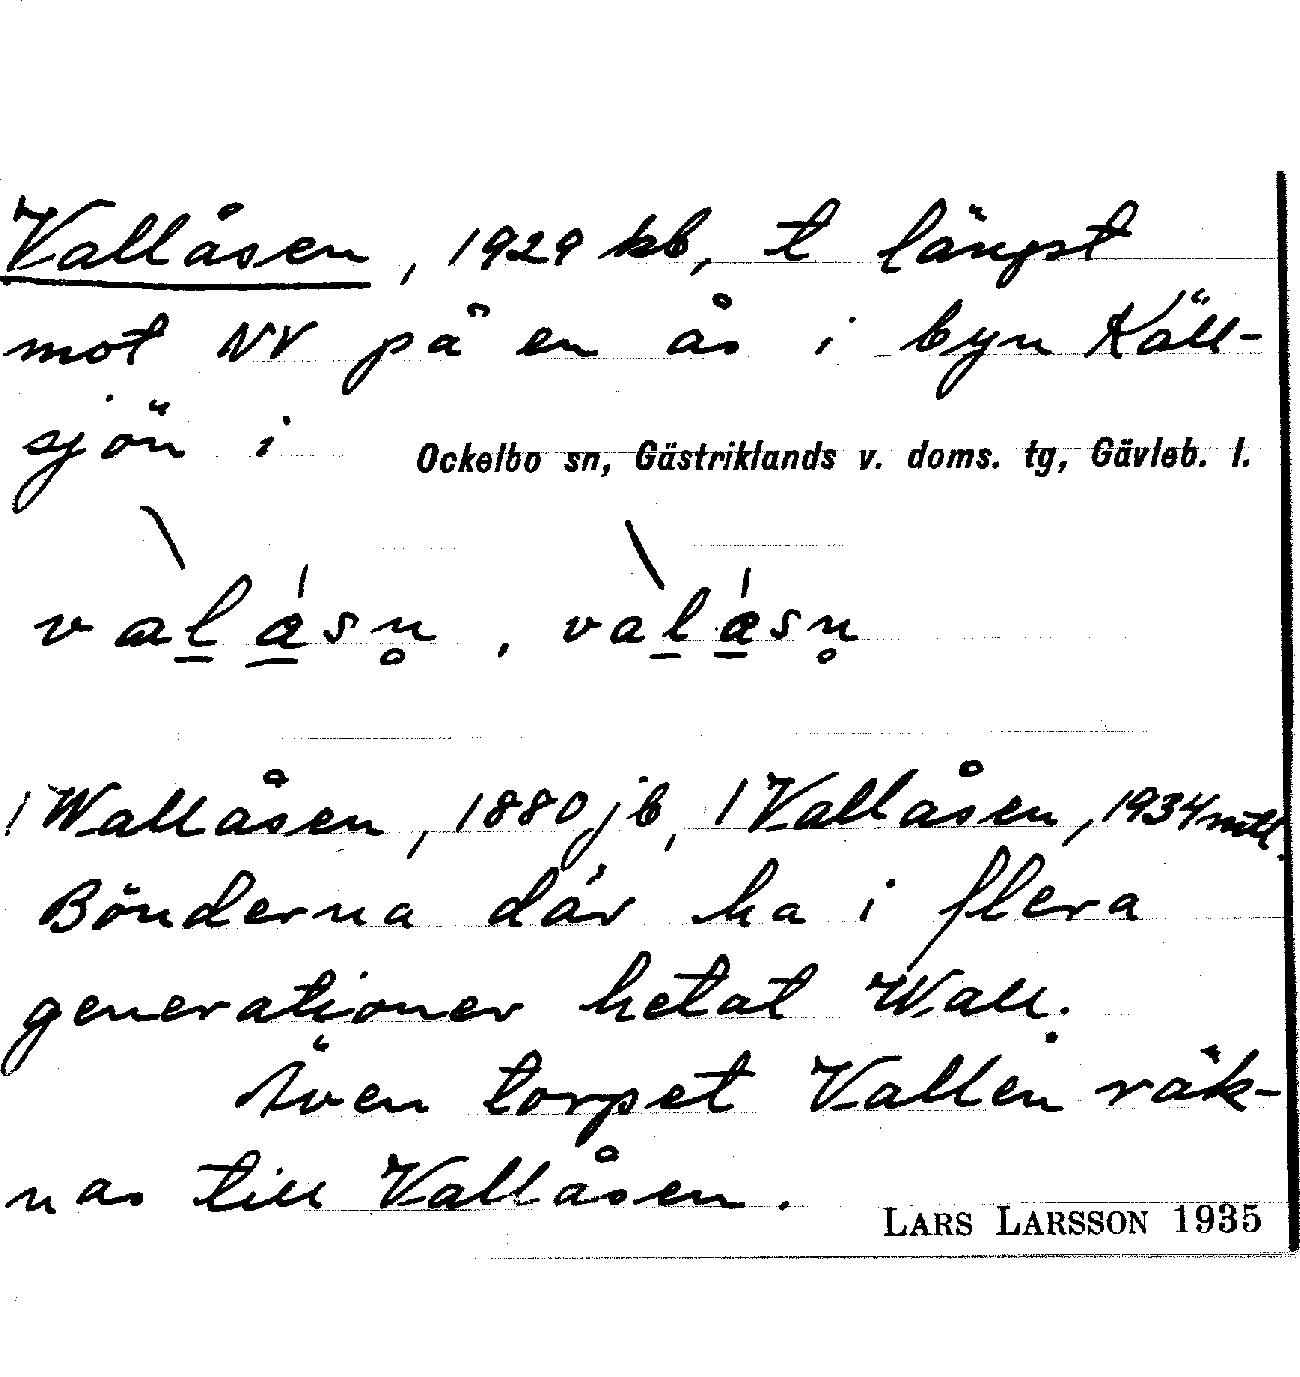 Vallåsen, 1929 kb, t längst
mot NV på en ås i byn Käll-
sjön i Ockelbo sn, Gästriklands v. doms. tg, Gävleb. l.
Wallåsen, 1880 jb, Vallåsen, 1934 mtl.
Bönderna där ha i flera
generationer hetat Wall.
Även torpet Vallen räk-
nas till Vallåsen.
LARS LARSSON 1935